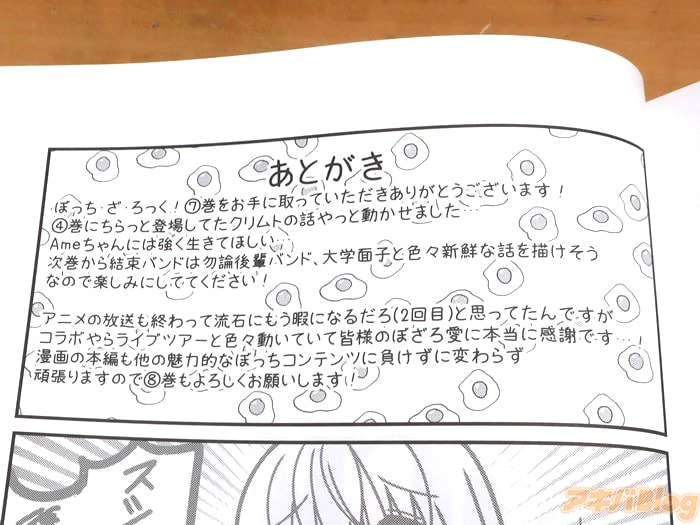 あとがき
ぼっち・ざ・ろっく！⑦巻をお手に取っていただきありがとうございます！
④巻にちらっと登場してたクリムトの話やっと動かせました…
Ameちゃんには強く生きてほしい…
次巻から結束バンドは勿論後輩バンド、大学面子と色々新鮮な話を描けそう
なので楽しみにしててください！
アニメの放送も終わって流石にもう暇になるだろ(2回目)と思ってたんですが
コラボやらライブツアーと色々動いていて皆様のぼざろ愛に本当に感謝です…！
漫画の本編も他の魅力的なぼっちコンテンツに負けずに変わらず
頑張りますので⑧巻もよろしくお願いします！
アキバBlog